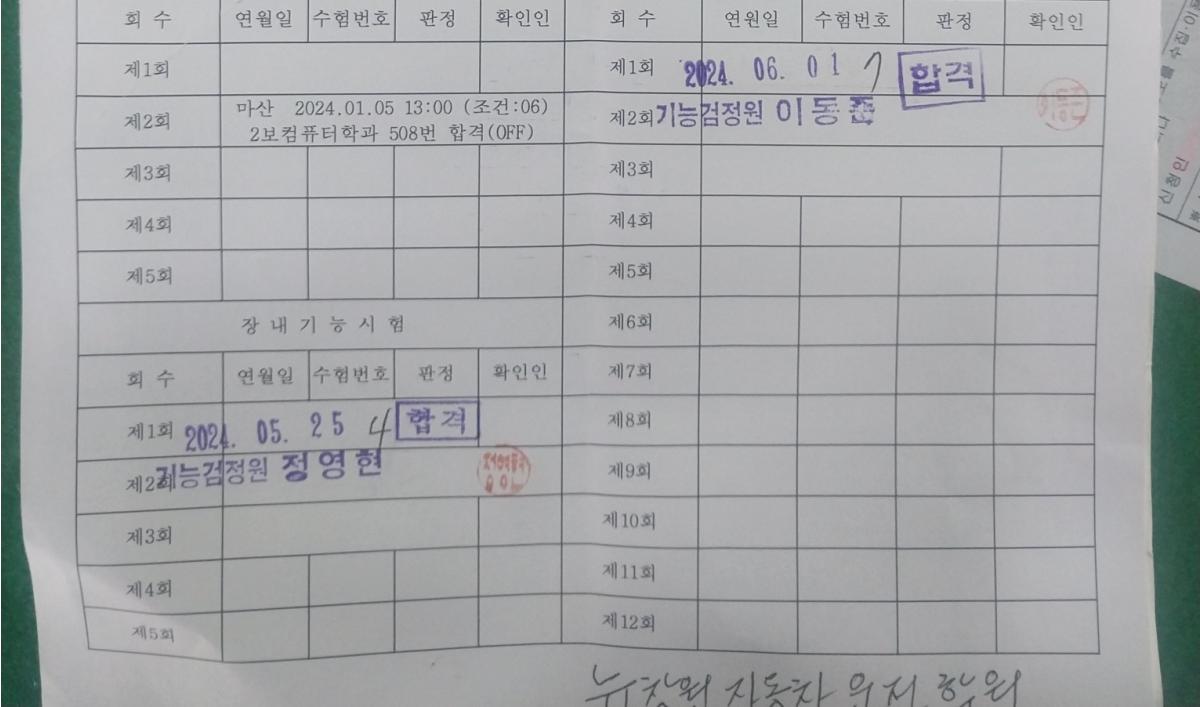 회 수 연월일 수험번호 판정 확인인
제1회
제2회 마산 2024.01.05 13:00 (조건:06)
2보컴퓨터학과 508번 합격(OFF)
제3회
제4회
제5회
장 내 기 능 시 험
회 수 연월일 수험번호 판정 확인인
제1회 2024. 05. 25 4 합격
제2회 기능검정원 정영현
제3회
제4회
제5회
회 수 연원일 수험번호 판정 확인인
제1회 2024. 06. 01 7 합격
제2회 기능검정원 이동준
제3회
제4회
제5회
제6회
제7회
제8회
제9회
제10회
제11회
제12회
뉴창원 자동차 운전 학원
신청인